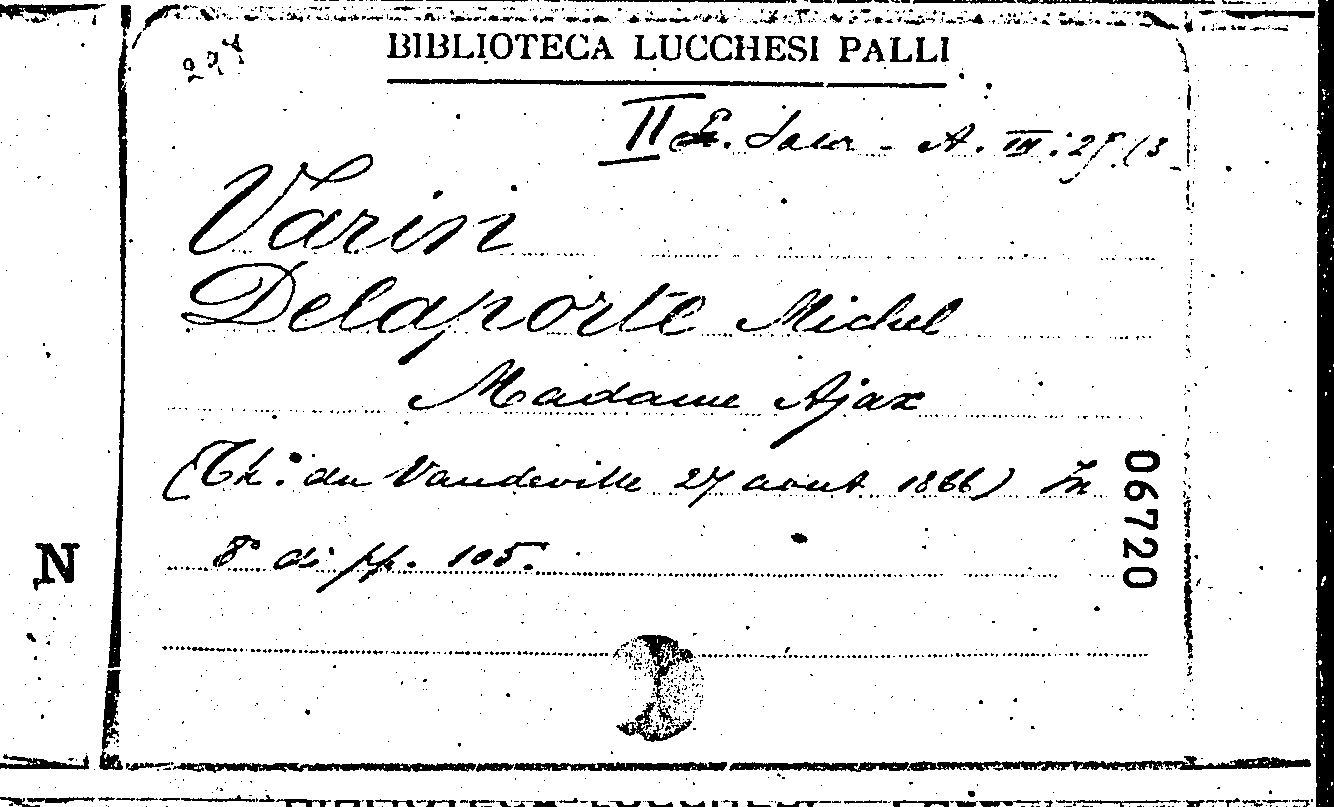 BIBLIOTECA LUCCHESI PALLI
II A. III: 25 (3
Varin
Delaporte Michel
Madame Ajax
(Th: du Vaudeville 27 aout 1866) In
8° di pp. 105.
06720
N